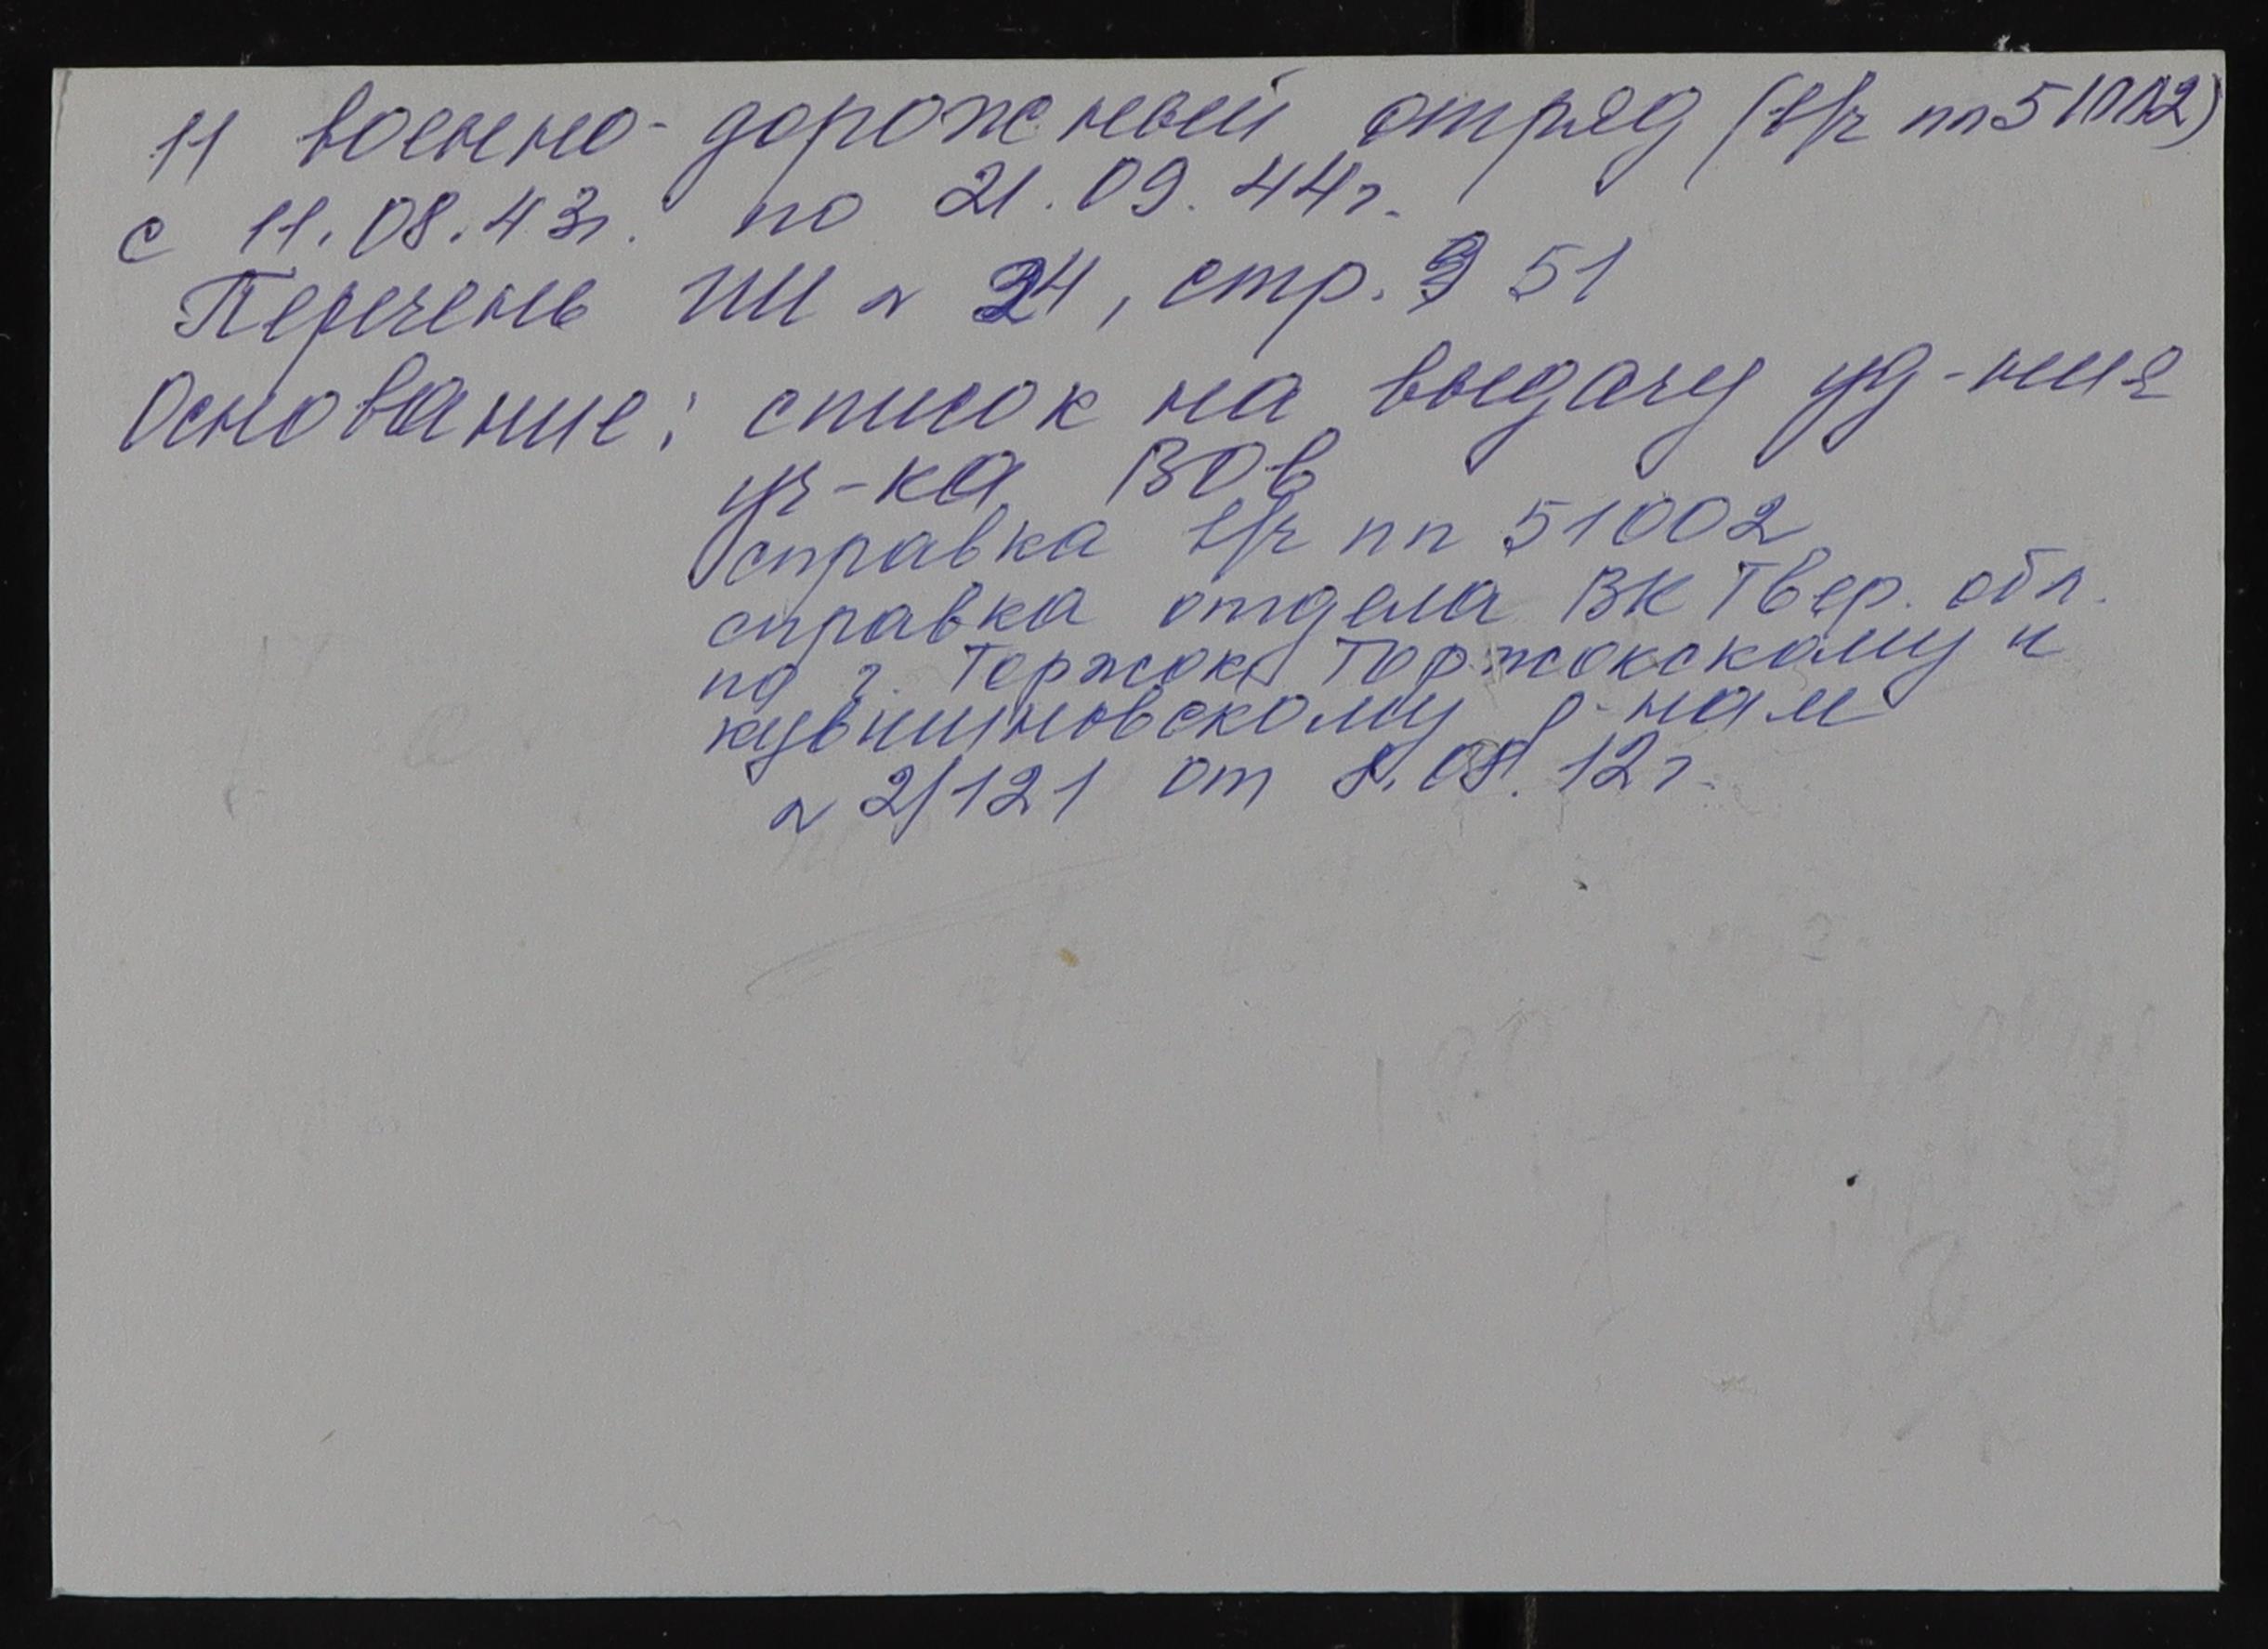 11 военно-дорожный отряд (в/ч пп 51002)
с 11.08.43г. по 21.09.44г.
Перечень ГШ № 24, стр. 51
Основание: список на выдачу уд-ния
уч-ка ВОв
справка в/ч пп 51002
справка отдела ВК Твер. обл.
по г. Торжок, Торжокскому и
кувшиновскому р-нам
№ 2/121 от 8.08.12г.